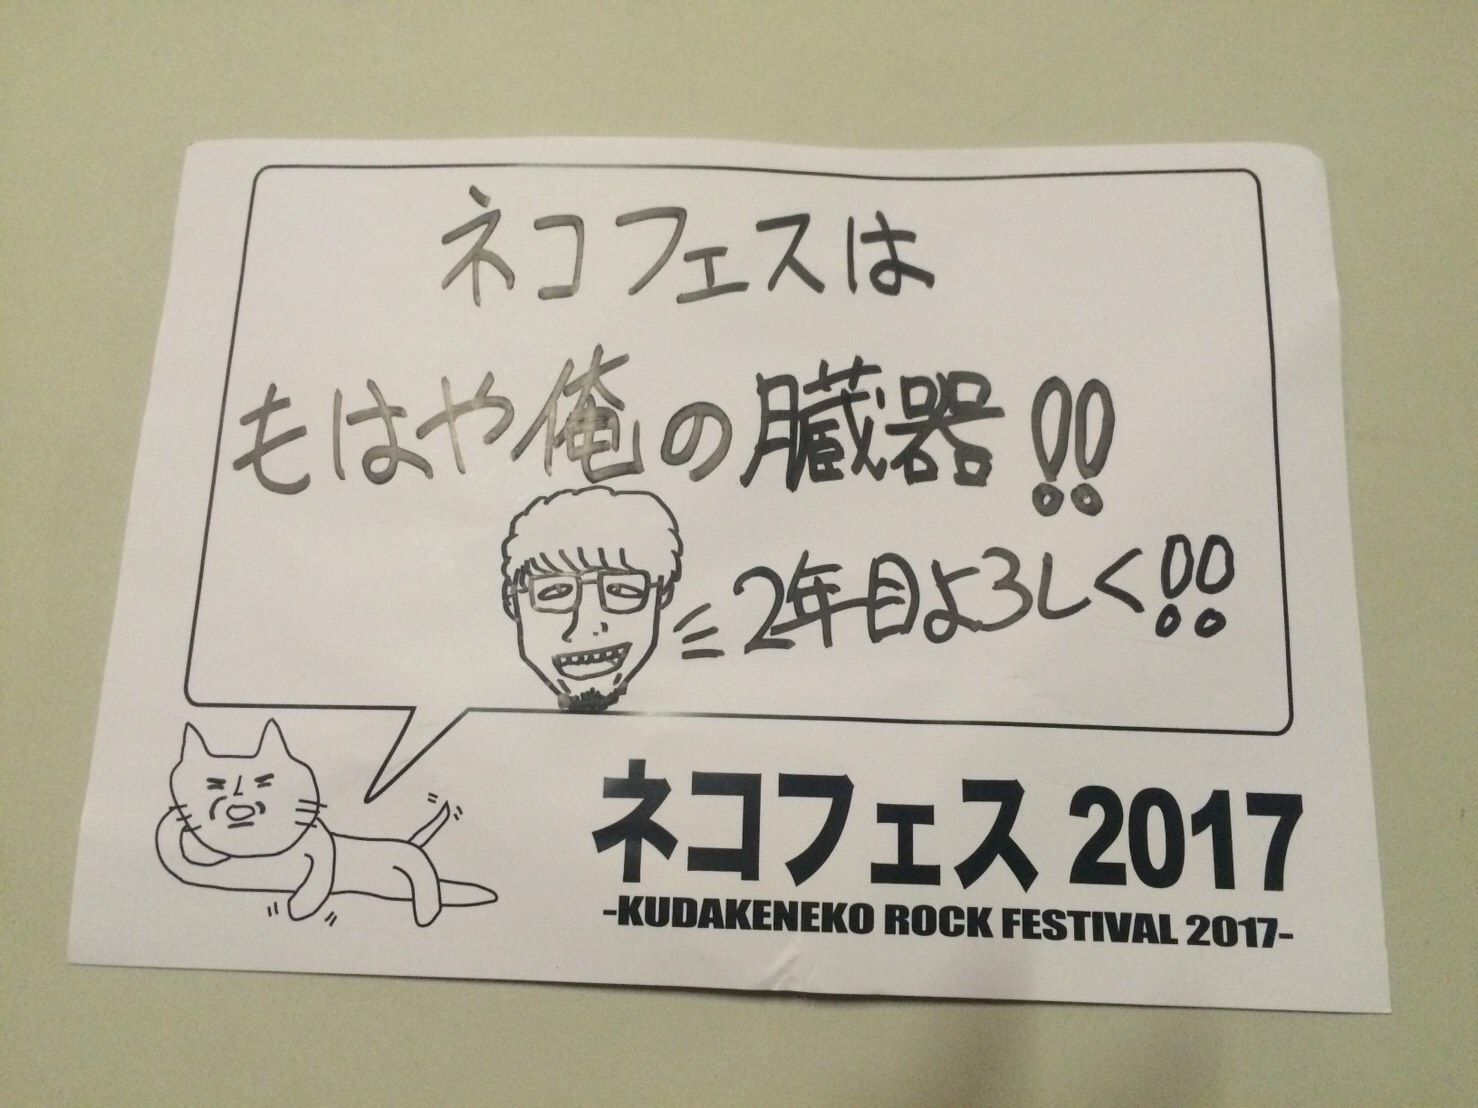 ネコフェスは
もはや俺の臓器!!
2年目よろしく!!
ネコフェス 2017
-KUDAKENEKO ROCK FESTIVAL 2017-